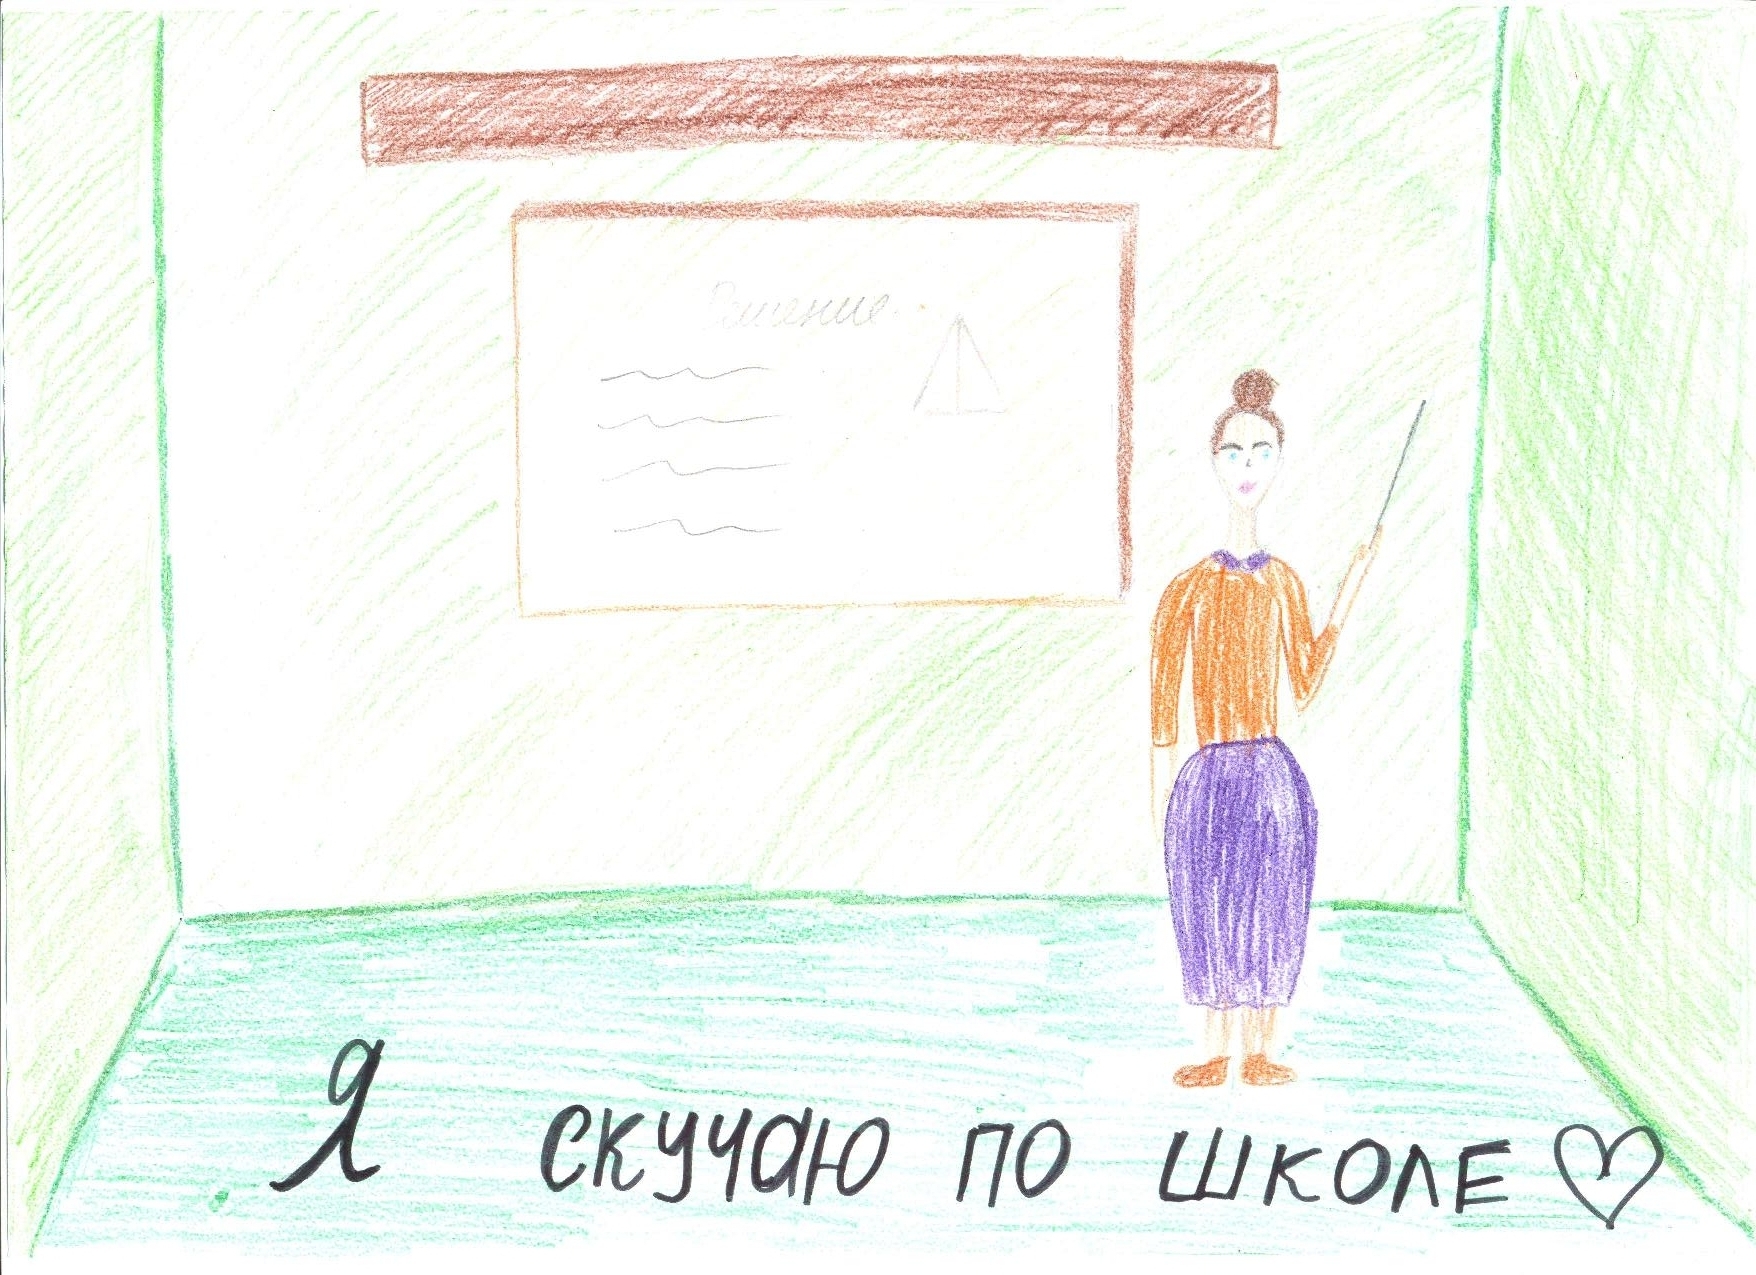 Решение.
Я скучаю по школе